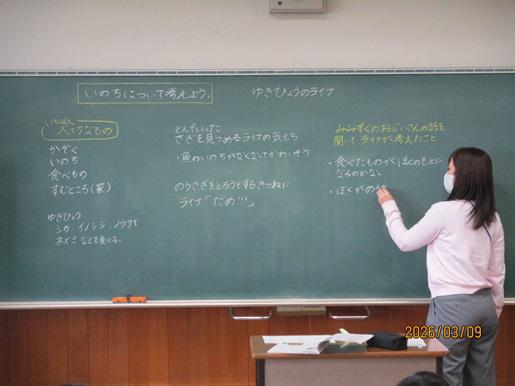 いのちについて考えよう。
ゆきひょうのライナ
いちばん
大切なもの
かぞく
いのち
食べもの
すむところ(家)
ゆきひょう
シカ、イノシシ、ノウサギ
ネズミ などを食べる。
とんでいった
さぎを見つめるライナの気もち
・魚のいのちがなくなってかわいそう
のうさぎをとろうとするきつねに
ライナ「だめ!!!」
みみずくのおじいさんの話を
聞いて ライナが考えたこと
・食べたものが ぼくのもとに
なるのかな。
・ぼくがの
2026/03/09